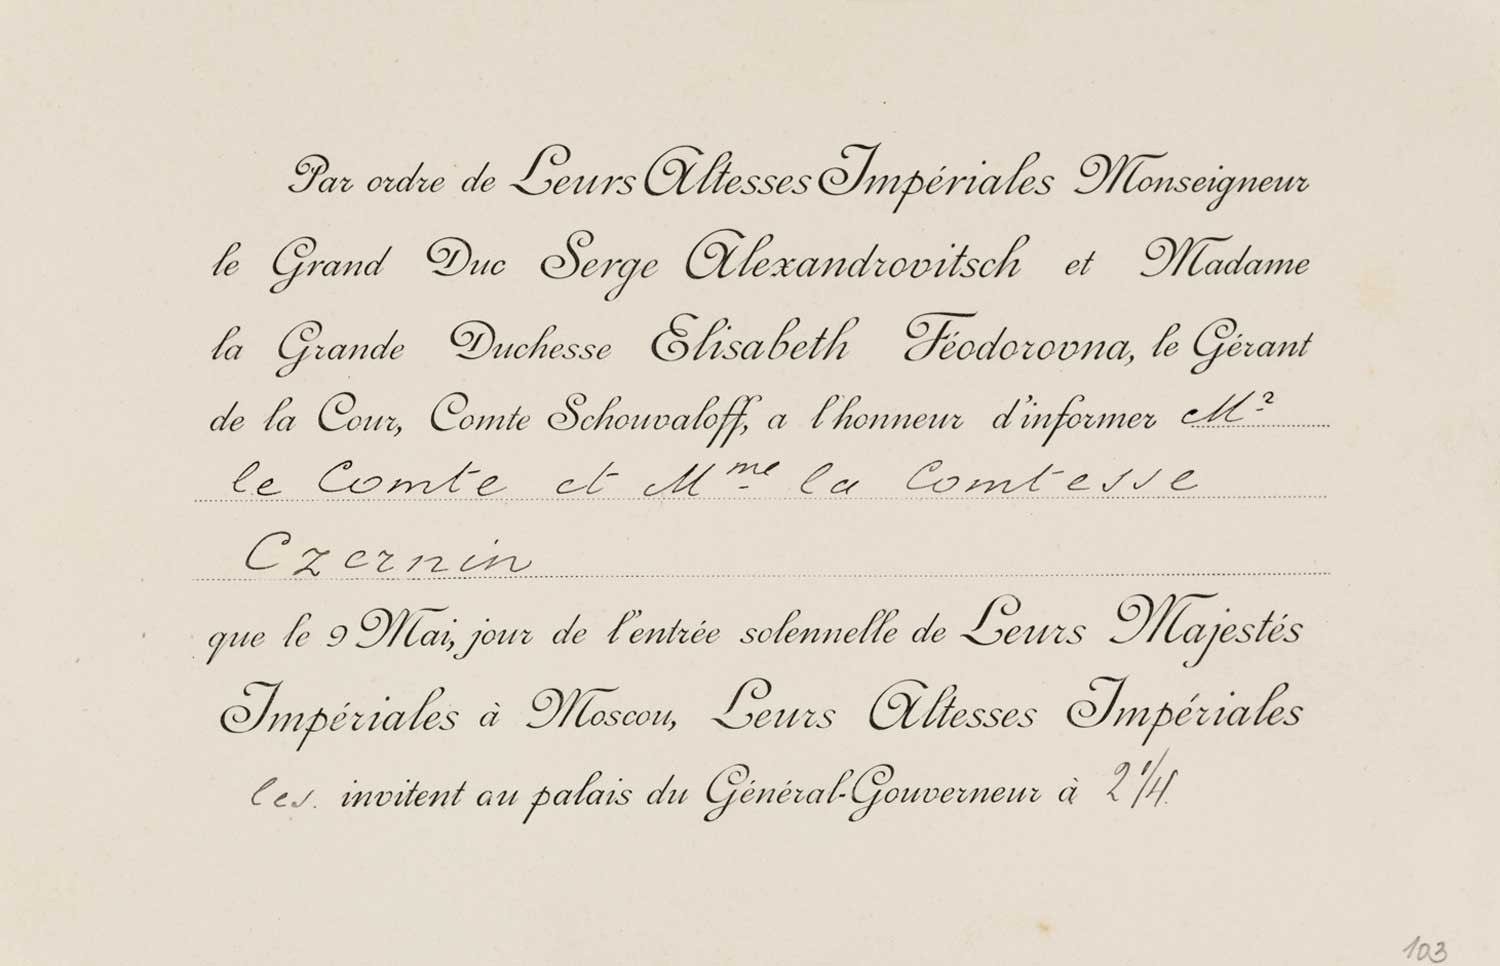 Par ordre de Leurs Altesses Impériales Monseigneur
le Grand Duc Serge Alexandrovitsch et Madame
la Grande Duchesse Elisabeth Féodorovna, le Gérant
de la Cour, Comte Schouvaloff, a l'honneur d'informer Mr
le Comte et Mme la Comtesse
Czernin
que le 9 Mai, jour de l'entrée solennelle de Leurs Majestés
Impériales à Moscou, Leurs Altesses Impériales
les invitent au palais du Général-Gouverneur à 2 1/4.
103